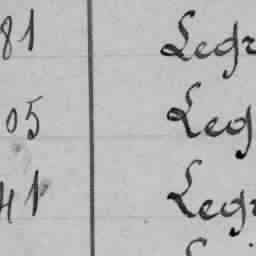 81 Legr
05 Leg
41 Legr